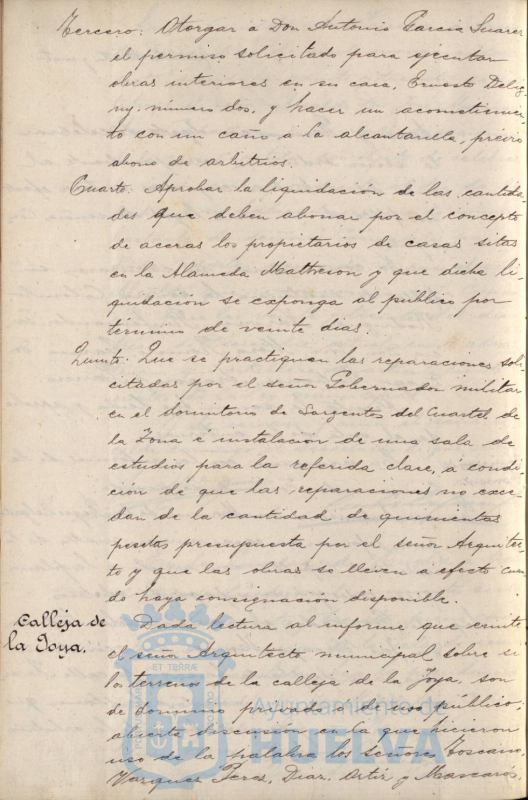 Tercero: Otorgar á Don Antonio Garcia Suarez
el permiso solicitado para ejecutar
obras interiores en su casa, Ernesto Delig-
ny. número dos. y hacer un acometimien-
to con un caño a la alcantarilla, previo
abono de arbitrios.
Cuarto: Aprobar la liquidación de las cantida-
des que deben abonar por el concepto
de aceras los propietarios de casas sitas
en la Alameda Matheson y que dicha li-
quidación se exponga al público por
término de veinte dias.
Quinto: Que se practiquen las reparaciones soli-
citadas por el señor Gobernador militar
en el dormitorio de Sargentos del Cuartel de
la Zona é instalación de una sala de
estudios para la referida clase, á condi-
ción de que las reparaciones no exce-
dan de la cantidad de quinientas
pesetas presupuesta por el señor Arquitec-
to y que las obras se lleven á efecto cuan-
do haya consignación disponible.
Calleja de
la Joya.
Dada lectura al informe que emite
el señor Arquitecto municipal sobre si
los terrenos de la calleja de la Joya, son
de dominio privado ó de uso público;
abierta discusión en la que hicieron
uso de la palabra los señores Toscano,
Vazquez Perez, Diaz, Ortiz y Mascarós,
Ayuntamiento de
HUELVA